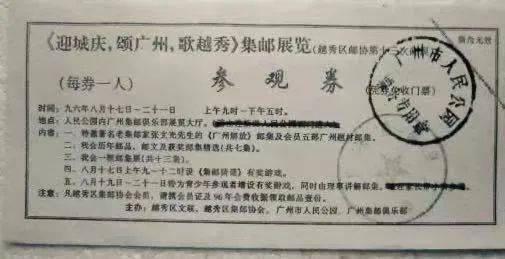 《迎城庆，颂广州，歌越秀》集邮展览(越秀区邮协第十三次邮展)
(每券一人)
参观券
时间：九六年八月十七日一二十一日 上午九时一下午五时。
地点：人民公园内广州集邮俱乐部展览大厅。
内容：一、特邀著名老集邮家张文光先生的《广州解放》邮集及会员五部广州题材邮集。
二、我会历年邮品、邮文及获奖邮集精选(共七集)。
三、我会一框邮集展(共十三集)。
四、八月十七日上午九一十二时设《集邮街道》有奖游戏。
五、八月十九日一二十一日特为青少年参观者增设有奖游戏，同时由理事讲解邮集。
注意：凡越秀区集邮协会会员，请携会员证及96年会费收据领取邮品壹份。
主办：越秀区文联，越秀区集邮协会，广州市人民公园，广州集邮俱乐部
广州市人民公园